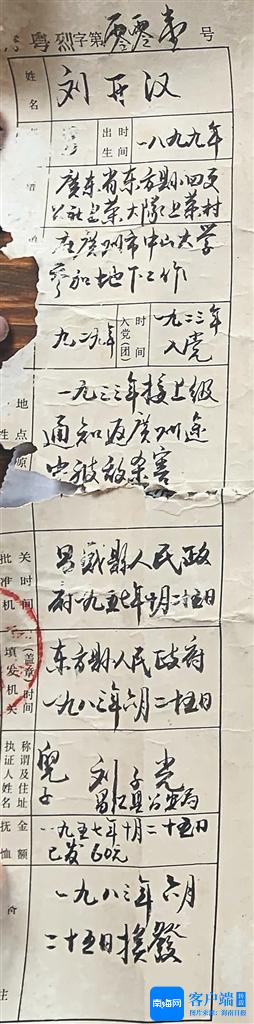 粤烈字第零零壹号
姓名
刘开汉
出生
时间
一八九九年
廣东省东方县小四更
公社旦莱大隊上莱村
在廣州市中山大学
参加地下工作
九二九年
入党(团)
时间
一九二三年
入党
地点
原
一九三三年接上级
通知返廣州途
中被敌杀害
批准机关
时间
昌感縣人民政
府一九五七年十月二十五日
填发机关
(盖章)
时间
东方县人民政府
一九八三年六月二十五日
执证人姓名
称谓及住址
兒子
刘子光
昌江县公安局
抚恤
金额
一九五七年十月二十五日
已发60元
一九八三年六月
二十五日换發
注
南海网
客户端
图片来源:海南日报